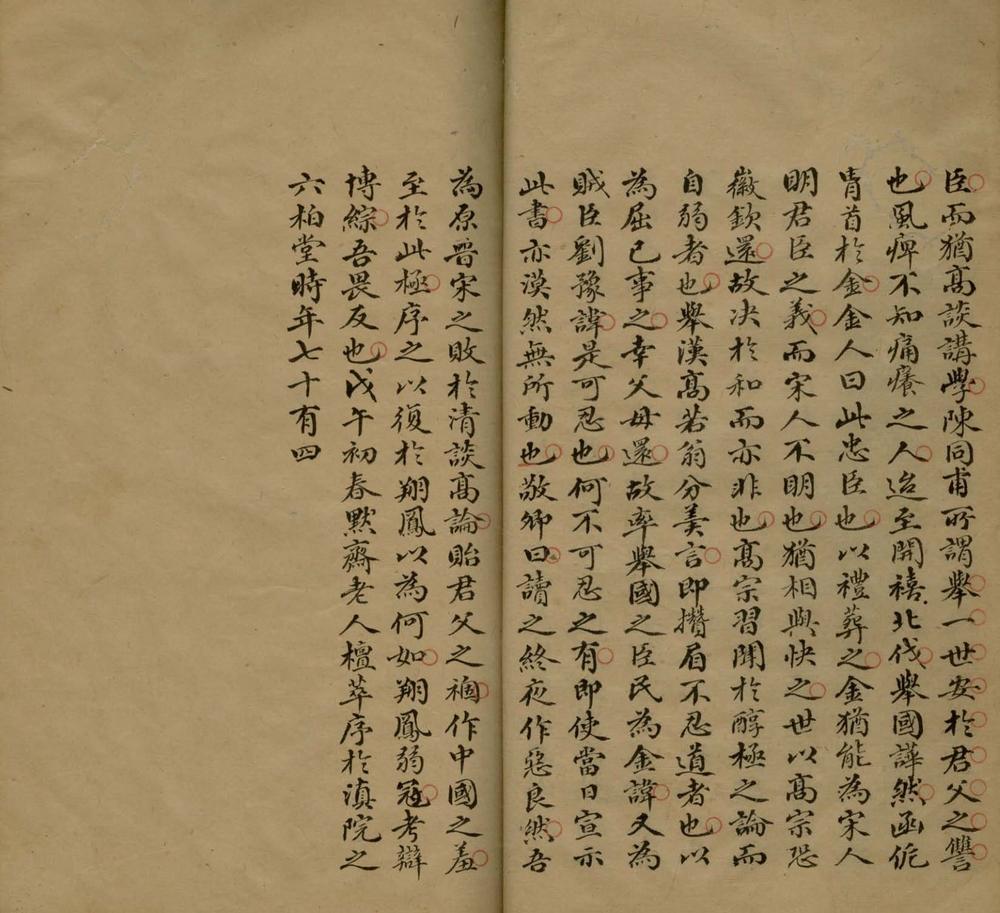 臣而猶高談講學陳同甫所謂舉一世安於君父之讐
也風痺不知痛癢之人迨至開禧北伐舉國譁然函侂
胄首於金金人曰此忠臣也以禮葬之金猶能為宋人
明君臣之義而宋人不明也猶相與快之世以高宗恐
徽欽還故决於和而亦非也高宗習聞於醇極之論而
自弱者也舉漢高若翁分羹言即攢眉不忍道者也以
為屈已事之幸父母還故率舉國之臣民為金諱又為
賊臣劉豫諱是可忍也何不可忍之有即使當日宣示
此書亦漠然無所動也敬卿曰讀之終夜作惡良然吾
為原晋宋之敗於清談高論貽君父之禍作中國之羞
至於此極序之以復於翔鳳以為何如翔鳳弱冠考辯
博綜吾畏友也戊午初春默齋老人檀萃序於滇院之
六柏堂時年七十有四